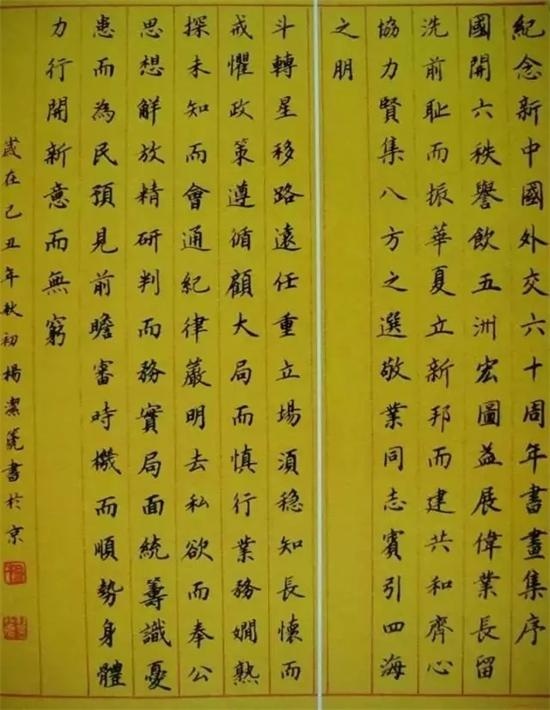 紀念新中國外交六十周年書畫集序
國開六秩譽飲五洲宏圖益展偉業長留
洗前耻而振華夏立新邦而建共和齊心
協力賢集八方之選敬業同志賓引四海
之朋
斗轉星移路遠任重立場須穩知長懷而
戒懼政策遵循顧大局而慎行業務嫺熟
探未知而會通紀律嚴明去私欲而奉公
思想解放精研判而務實局面統籌識憂
患而為民預見前瞻審時機而順勢身體
力行開新意而無窮
歲在己丑年秋初楊潔篪書於京